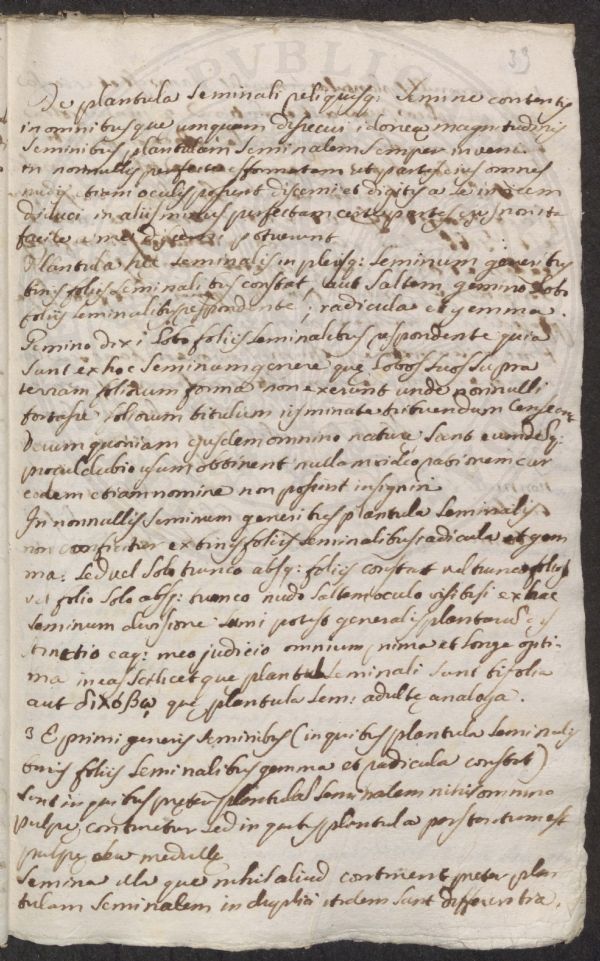 33
De plantula seminali reliquisq: semine contentis
in omnibusque umquam dissecui idoneę magnitudinis
seminibus plantulam seminalem semper inveni.
in nonnullis perfecte efformatam ut partes eius omnes
nudis etiam oculis possint discerni et digitis a se invicem
diduci in aliis minus perfectam cuius partes non ita
facile a me discerni potuerunt
Plantula hęc seminalis in plerisq: seminum generibus
binis foliis seminalibus constat, aut saltem gemino lobo
foliis seminalibus respondente, radicula et gemma.
Gemino dixi lobo foliis seminalibus respondente quia
sunt ex hoc seminum genere quę lobos suos supra
terram foliorum forma non exerunt unde nonnulli
fortasse foliorum titulum iis minate tribuendum censeant
Verum quoniam ejusdem omnino naturę sunt eundesq:
proculdubio usum obtinent nullam video rationem cur
eodem etiam nomine non possint insigniri
In nonnullis seminum generibus plantula seminalis
non conficitur ex binis foliis seminalibus radicula et gem
ma: sed vel solo trunco absq: foliis constat vel trunco
vel folio solo absq: trunco nudo saltem oculo visibisi ex hac
seminum divisione sumi potest generalis plantarum
stinctio eaq: meo judicio omnium prima et longe opti
ma in eas scilicet quę plantula seminali sunt bifolia
aut διλόβῳ quę plantula sem: adultę analoga.
3 E primi generis seminibus (in quibus plantula seminalis
binis foliis seminalibus gemma et radicula constat)
sunt in quibus pręter plantulam seminalem nihil omnino
pulpę continetur sed in quibus plantula
pulpę seu medullę
Semina illa quę nihil aliud continent pręter plan
tulam seminalem in duplici itidem sunt differentia.